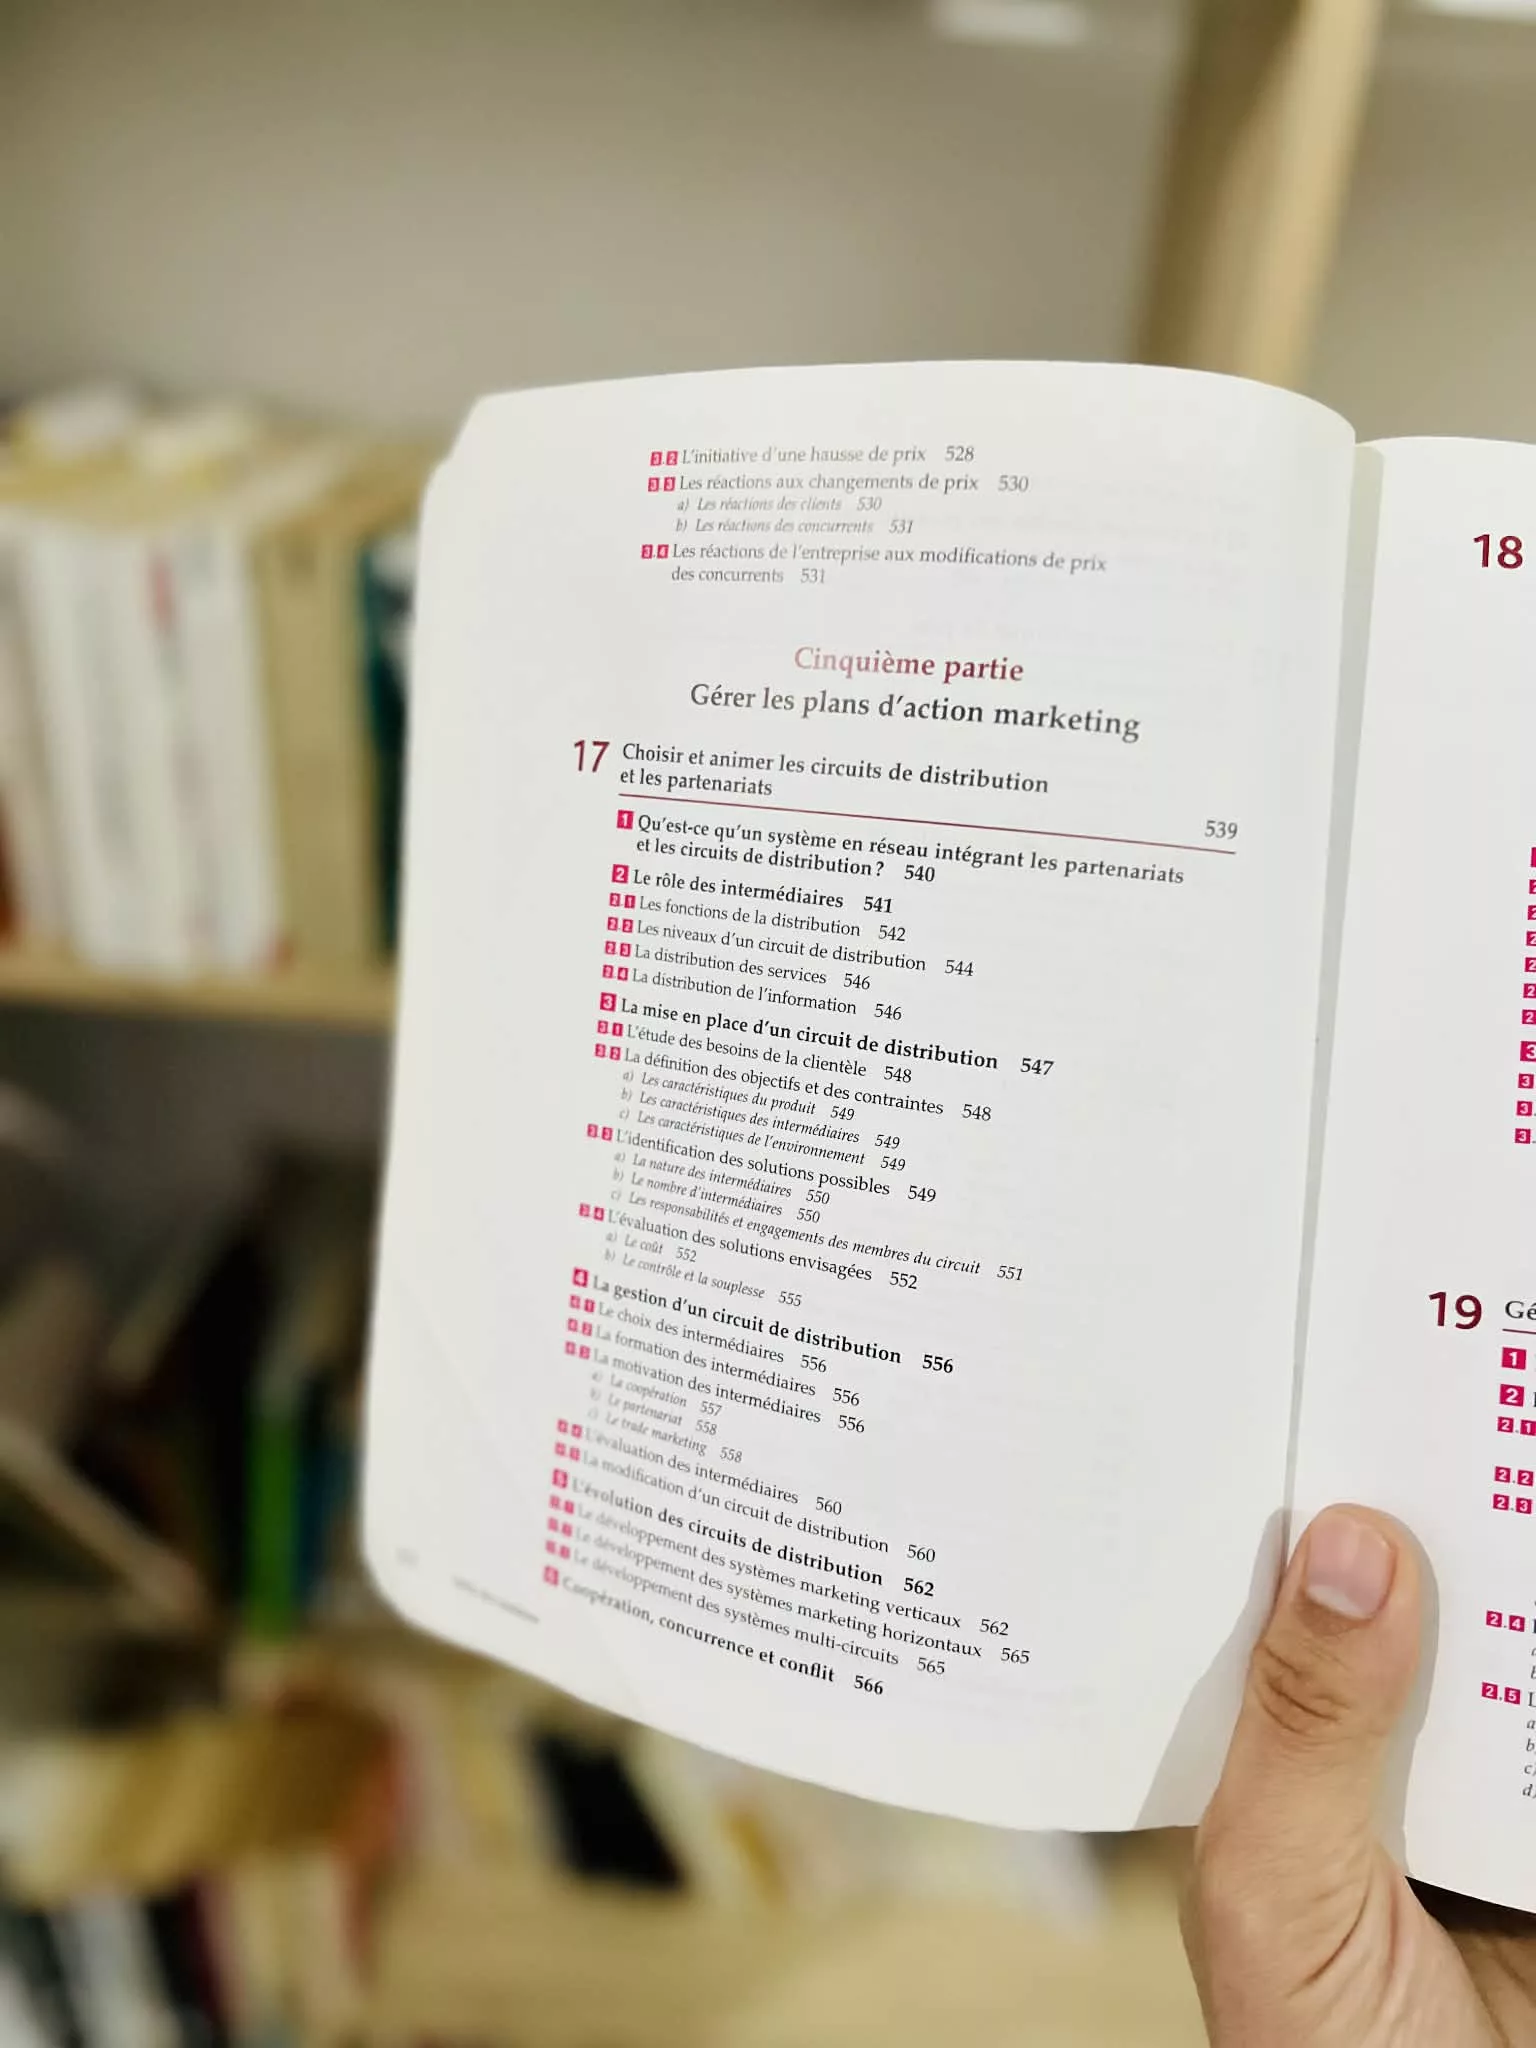 3.2 L'initiative d'une hausse de prix 528
3.3 Les réactions aux changements de prix 530
a) Les réactions des clients 530
b) Les réactions des concurrents 531
3.4 Les réactions de l'entreprise aux modifications de prix
des concurrents 531
Cinquième partie
Gérer les plans d'action marketing
17 Choisir et animer les circuits de distribution
et les partenariats 539
1 Qu'est-ce qu'un système en réseau intégrant les partenariats
et les circuits de distribution ? 540
2 Le rôle des intermédiaires 541
2.1 Les fonctions de la distribution 542
2.2 Les niveaux d'un circuit de distribution 544
2.3 La distribution des services 546
2.4 La distribution de l'information 546
3 La mise en place d'un circuit de distribution 547
3.1 L'étude des besoins de la clientèle 548
3.2 La définition des objectifs et des contraintes 548
a) Les caractéristiques du produit 549
b) Les caractéristiques des intermédiaires 549
c) Les caractéristiques de l'environnement 549
3.3 L'identification des solutions possibles 549
a) La nature des intermédiaires 550
b) Le nombre d'intermédiaires 550
c) Les responsabilités et engagements des membres du circuit 551
3.4 L'évaluation des solutions envisagées 552
a) Le coût 552
b) Le contrôle et la souplesse 555
4 La gestion d'un circuit de distribution 556
4.1 Le choix des intermédiaires 556
4.2 La formation des intermédiaires 556
4.3 La motivation des intermédiaires 556
a) La coopération 557
b) Le partenariat 558
c) Le trade marketing 558
4.4 L'évaluation des intermédiaires 560
4.5 La modification d'un circuit de distribution 560
5 L'évolution des circuits de distribution 562
5.1 Le développement des systèmes marketing verticaux 562
5.2 Le développement des systèmes marketing horizontaux 565
5.3 Le développement des systèmes multi-circuits 565
6 Coopération, concurrence et conflit 566
18
19 Gé
1
2
2.1
2.2
2.3
2.4
2.5 L
a
b
c)
d)